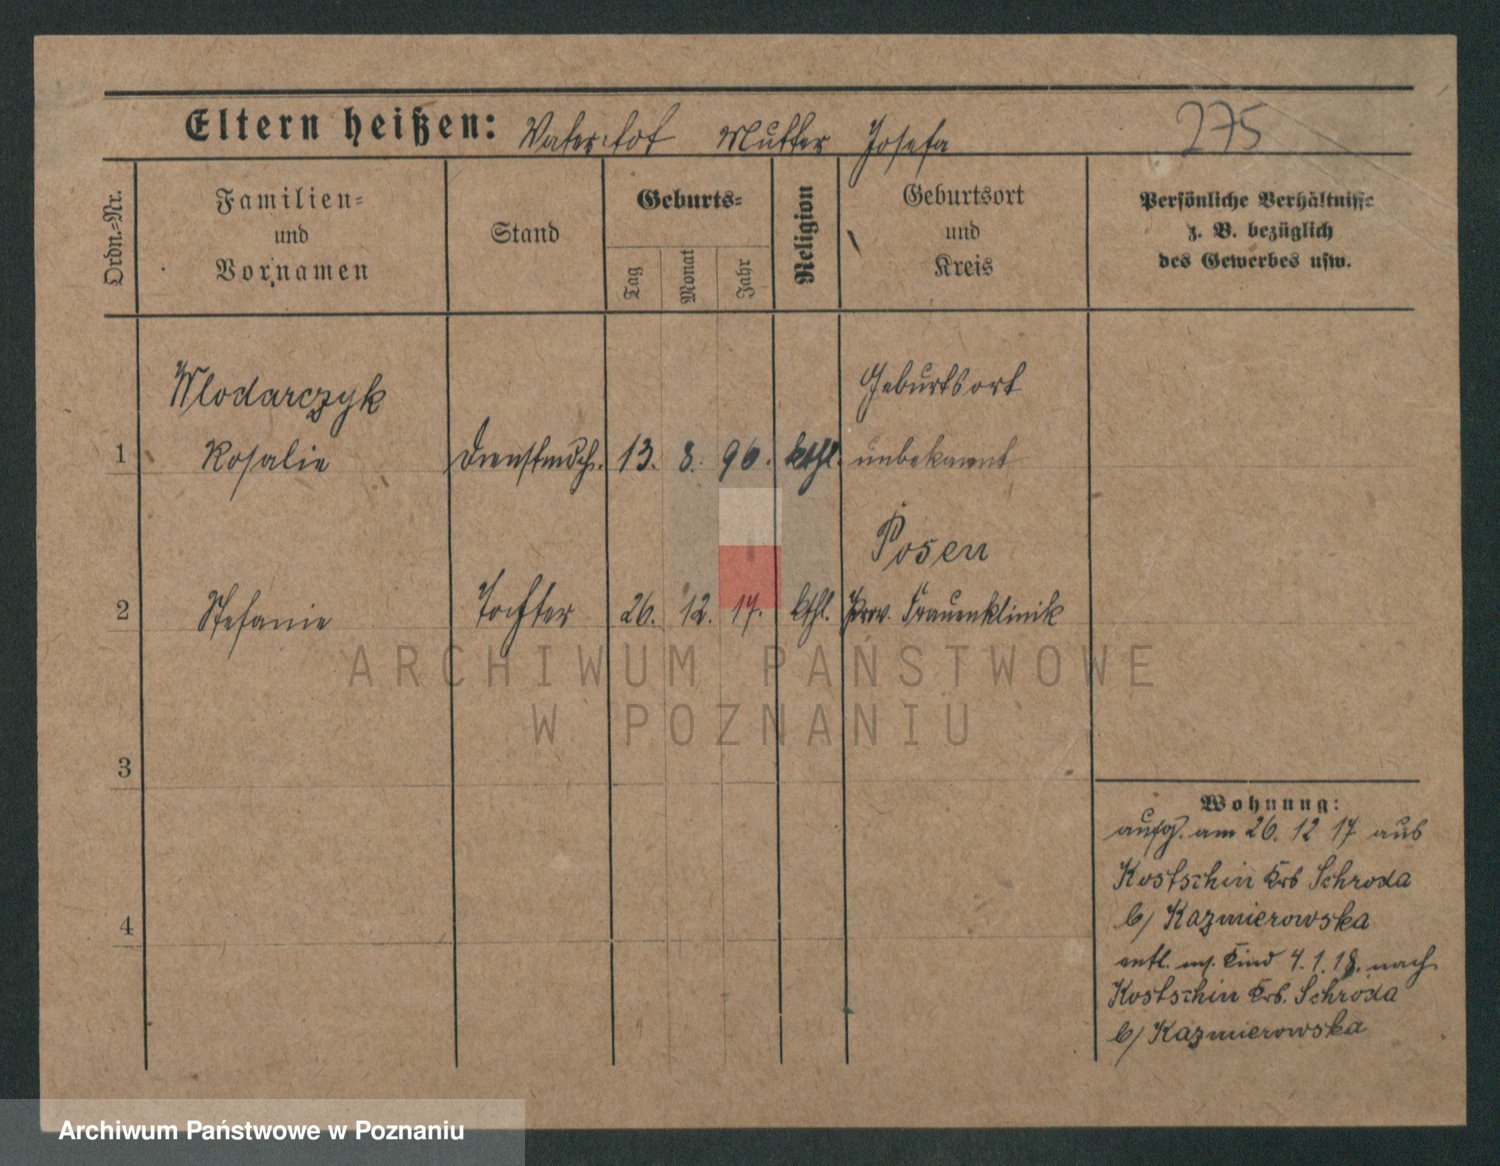 Eltern heißen: Vater tot Mutter Josefa
275
Ordn.-Nr.
Familien-
und
Vornamen
Stand
Geburts-
Tag
Monat
Jahr
Religion
Geburtsort
und
Kreis
Persönliche Verhältnisse
z. B. bezüglich
des Gewerbes usw.
Wlodarczyk
Geburtsort
1 Rosalie Dienstmdch. 13. 8. 96. kthl. unbekannt
Posen
2 Stefanie Tochter 26. 12. 17. kthl. Prov. Frauenklinik
ARCHIWUM PAŃSTWOWE
W POZNANIU
3
4
Wohnung:
aufg. am 26. 12 17 aus
Kostschin Krs Schroda
b/ Kazmierowska
entl. m. Kind 4. 1. 18. nach
Kostschin Krs. Schroda
b/ Kazmierowska
Archiwum Państwowe w Poznaniu